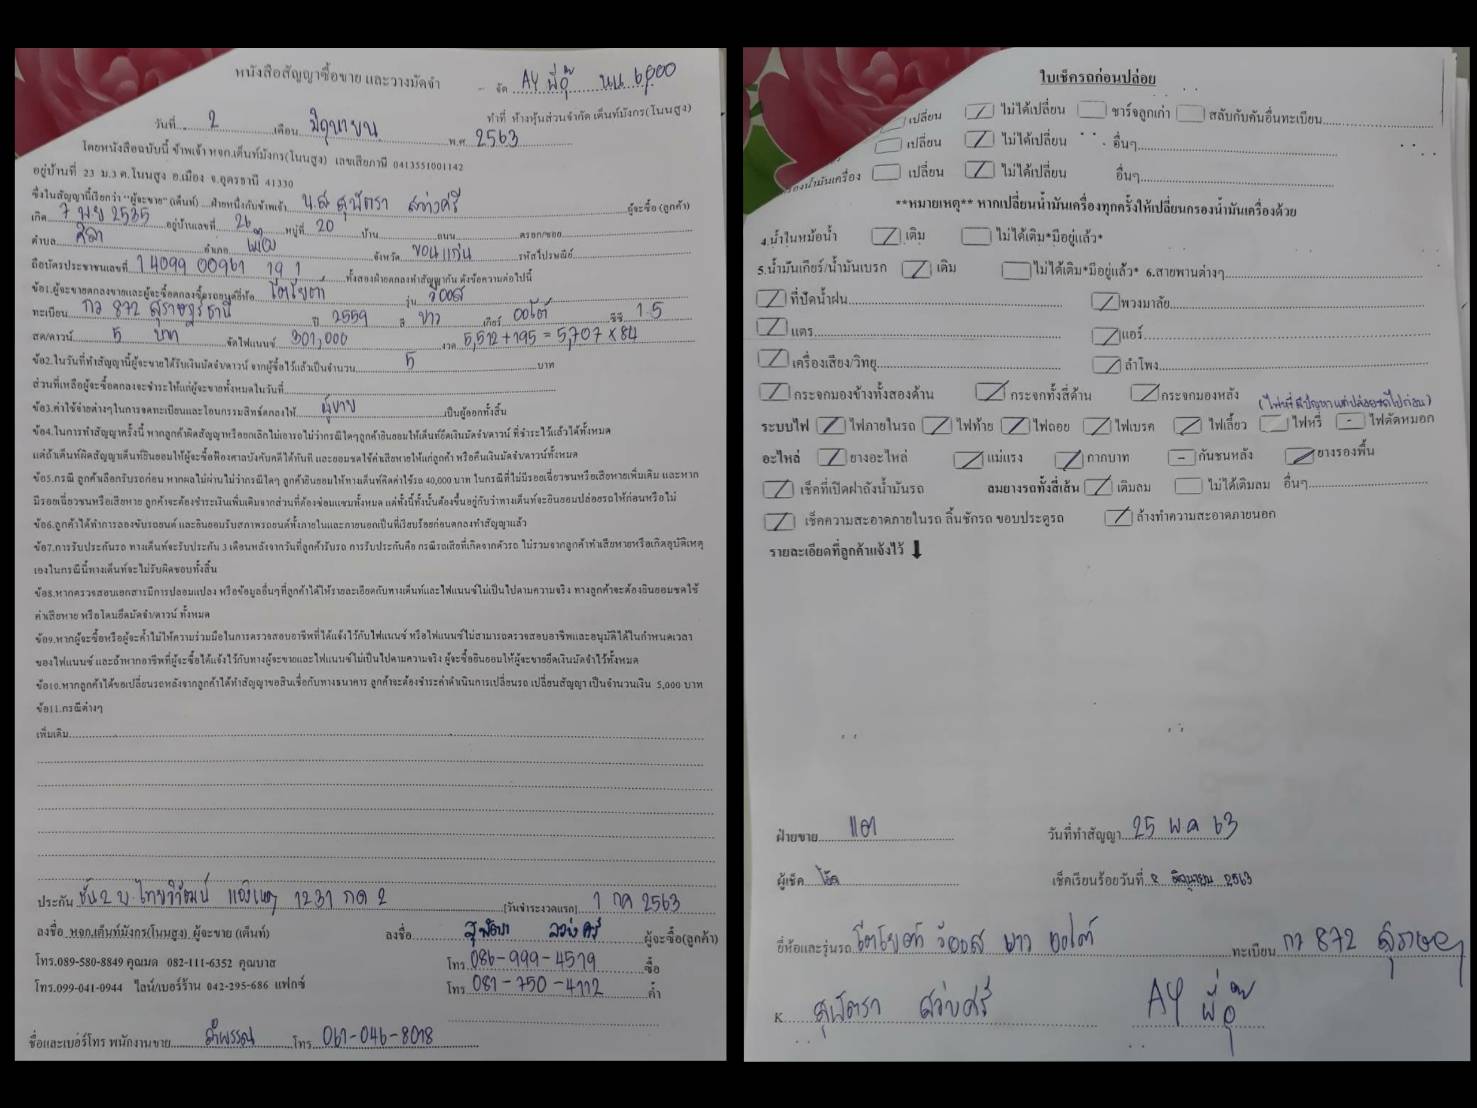 หนังสือสัญญาซื้อขาย และวางมัดจำ
จัด AY พี่อุ๊ นน 6,000
ทำที่ ห้างหุ้นส่วนจำกัด เต็นท์มังกร(โนนสูง)
วันที่ 2 เดือน มิถุนายน พ.ศ 2563
โดยหนังสือฉบับนี้ ข้าพเจ้า หจก.เต็นท์มังกร(โนนสูง) เลขเสียภาษี 0413551001142
อยู่บ้านที่ 23 ม.3 ต.โนนสูง อ.เมือง จ.อุดรธานี 41330
ซึ่งในสัญญานี้เรียกว่า "ผู้จะขาย" (เต็นท์) ...ฝ่ายหนึ่งกับข้าพเจ้า น.ส สุพัตรา สว่างศรี ผู้จะซื้อ (ลูกค้า)
เกิด 7 พย 2535 อยู่บ้านเลขที่ 26 หมู่ที่ 20 บ้าน ถนน ตรอก/ซอย
ตำบล ศิลา อำเภอ เมือง จังหวัด ขอนแก่น รหัสไปรษณีย์
ถือบัตรประชาชนเลขที่ 1 4099 00961 19 1 ทั้งสองฝ่ายตกลงทำสัญญากัน ดังข้อความต่อไปนี้
ข้อ1.ผู้จะขายตกลงขายและผู้จะซื้อตกลงซื้อรถยนต์ยี่ห้อ โตโยต้า รุ่น วีออส
ทะเบียน กว 872 สุราษฎร์ธานี ปี 2559 สี ขาว เกียร์ ออโต้ ซีซี 1.5
สด/ดาวน์ 5 บาท จัดไฟแนนซ์ 301,000 งวด 5,512+195 = 5,707 x 84
ข้อ2.ในวันที่ทำสัญญานี้ผู้จะขายได้รับเงินมัดจำ/ดาวน์ จากผู้ซื้อไว้แล้วเป็นจำนวน 5 บาท
ส่วนที่เหลือผู้จะซื้อตกลงจะชำระให้แก่ผู้จะขายทั้งหมดในวันที่
ข้อ3.ค่าใช้จ่ายต่างๆในการจดทะเบียนและโอนกรรมสิทธิ์ตกลงให้ ผู้ขาย เป็นผู้ออกทั้งสิ้น
ข้อ4.ในการทำสัญญาครั้งนี้ หากลูกค้าผิดสัญญาหรือยกเลิกไม่เอารถไม่ว่ากรณีใดๆลูกค้ายินยอมให้เต็นท์ยึดเงินมัดจำ/ดาวน์ ที่ชำระไว้แล้วได้ทั้งหมด
แต่ถ้าเต็นท์ผิดสัญญาเต็นท์ยินยอมให้ผู้ซื้อฟ้องศาลบังคับคดีได้ทันที และยอมชดใช้ค่าเสียหายให้แก่ลูกค้า หรือคืนเงินมัดจำ/ดาวน์ทั้งหมด
ข้อ5.กรณี ลูกค้าเลือกรับรถก่อน หากผลไม่ผ่านไม่ว่ากรณีใดๆ ลูกค้ายินยอมให้ทางเต็นท์คิดค่าใช้รถ 40,000 บาท ในกรณีที่ไม่มีรอยเฉี่ยวชนหรือเสียหายเพิ่มเติม และหาก
มีรอยเฉี่ยวชนหรือเสียหาย ลูกค้าจะต้องชำระเงินเพิ่มเติมจากส่วนที่ต้องซ่อมแซมทั้งหมด แต่ทั้งนี้ทั้งนั้นต้องขึ้นอยู่กับว่าทางเต็นท์จะยินยอมปล่อยรถให้ก่อนหรือไม่
ข้อ6.ลูกค้าได้ทำการลองขับรถยนต์ และยินยอมรับสภาพรถยนต์ทั้งภายในและภายนอกเป็นที่เรียบร้อยก่อนตกลงทำสัญญาแล้ว
ข้อ7.การรับประกันรถ ทางเต็นท์จะรับประกัน 3 เดือนหลังจากวันที่ลูกค้ารับรถ การรับประกันคือ กรณีรถเสียที่เกิดจากตัวรถ ไม่รวมจากลูกค้าทำเสียหายหรือเกิดอุบัติเหตุ
เองในกรณีนี้ทางเต็นท์จะไม่รับผิดชอบทั้งสิ้น
ข้อ8.หากตรวจสอบเอกสารมีการปลอมแปลง หรือข้อมูลอื่นๆที่ลูกค้าได้ให้รายละเอียดกับทางเต็นท์และไฟแนนซ์ไม่เป็นไปตามความจริง ทางลูกค้าจะต้องยินยอมชดใช้
ค่าเสียหาย หรือโดนยึดมัดจำ/ดาวน์ ทั้งหมด
ข้อ9.หากผู้จะซื้อหรือผู้จะค้ำไม่ให้ความร่วมมือในการตรวจสอบอาชีพที่ได้แจ้งไว้กับไฟแนนซ์ หรือไฟแนนซ์ไม่สามารถตรวจสอบอาชีพและอนุมัติได้ในกำหนดเวลา
ของไฟแนนซ์ และถ้าหากอาชีพที่ผู้จะซื้อได้แจ้งไว้กับทางผู้จะขายและไฟแนนซ์ไม่เป็นไปตามความจริง ผู้จะซื้อยินยอมให้ผู้จะขายยึดเงินมัดจำไว้ทั้งหมด
ข้อ10.หากลูกค้าได้ขอเปลี่ยนรถหลังจากลูกค้าได้ทำสัญญาขอสินเชื่อกับทางธนาคาร ลูกค้าจะต้องชำระค่าดำเนินการเปลี่ยนรถ เปลี่ยนสัญญา เป็นจำนวนเงิน 5,000 บาท
ข้อ11.กรณีต่างๆ
เพิ่มเติม
ประกัน ชั้น2 บ.ไทยวิวัฒน์ แจ้งเหตุ 1231 กด 2 [วันชำระงวดแรก] 1 กค 2563
ลงชื่อ หจก.เต็นท์มังกร(โนนสูง) ผู้จะขาย (เต็นท์) ลงชื่อ สุพัตรา สว่างศรี ผู้จะซื้อ(ลูกค้า)
โทร.089-580-8849 คุณมด 082-111-6352 คุณบาส โทร 086-999-4519 ซื้อ
โทร.099-041-0944 ไลน์/เบอร์ร้าน 042-295-686 แฟกซ์ โทร 081-750-4112 ค้ำ
ชื่อและเบอร์โทร พนักงานขาย ลำพรรณ โทร 061-046-8018
ใบเช็ครถก่อนปล่อย
เปลี่ยน ไม่ได้เปลี่ยน ชาร์จลูกเก่า สลับกับคันอื่นทะเบียน
เปลี่ยน ไม่ได้เปลี่ยน อื่นๆ
องน้ำมันเครื่อง เปลี่ยน ไม่ได้เปลี่ยน อื่นๆ
**หมายเหตุ** หากเปลี่ยนน้ำมันเครื่องทุกครั้งให้เปลี่ยนกรองน้ำมันเครื่องด้วย
4.น้ำในหม้อน้ำ เติม ไม่ได้เติม*มีอยู่แล้ว*
5.น้ำมันเกียร์/น้ำมันเบรค เติม ไม่ได้เติม*มีอยู่แล้ว* 6.สายพานต่างๆ
ที่ปัดน้ำฝน พวงมาลัย
แตร แอร์
เครื่องเสียง/วิทยุ ลำโพง
กระจกมองข้างทั้งสองด้าน กระจกทั้งสี่ด้าน กระจกมองหลัง
(ไฟหรี่ มีปัญหาแต่ปล่อยรถไปก่อน)
ระบบไฟ ไฟภายในรถ ไฟท้าย ไฟถอย ไฟเบรค ไฟเลี้ยว ไฟหรี่ - ไฟตัดหมอก
อะไหล่ ยางอะไหล่ แม่แรง กากบาท - กันชนหลัง ยางรองพื้น
เช็คที่เปิดฝาถังน้ำมันรถ ลมยางรถทั้งสี่เส้น เติมลม ไม่ได้เติมลม อื่นๆ
เช็คความสะอาดภายในรถ ลิ้นชักรถ ขอบประตูรถ ล้างทำความสะอาดภายนอก
รายละเอียดที่ลูกค้าแจ้งไว้
ฝ่ายขาย แตา วันที่ทำสัญญา 25 พค 63
ผู้เช็ค เช็คเรียบร้อยวันที่ 2 มิถุนายน 2563
ยี่ห้อและรุ่นรถ โตโยต้า วีออส ขาว ออโต้ ทะเบียน กว 872 สุราษฎ
K. สุพัตรา สว่างศรี AY พี่อุ๊